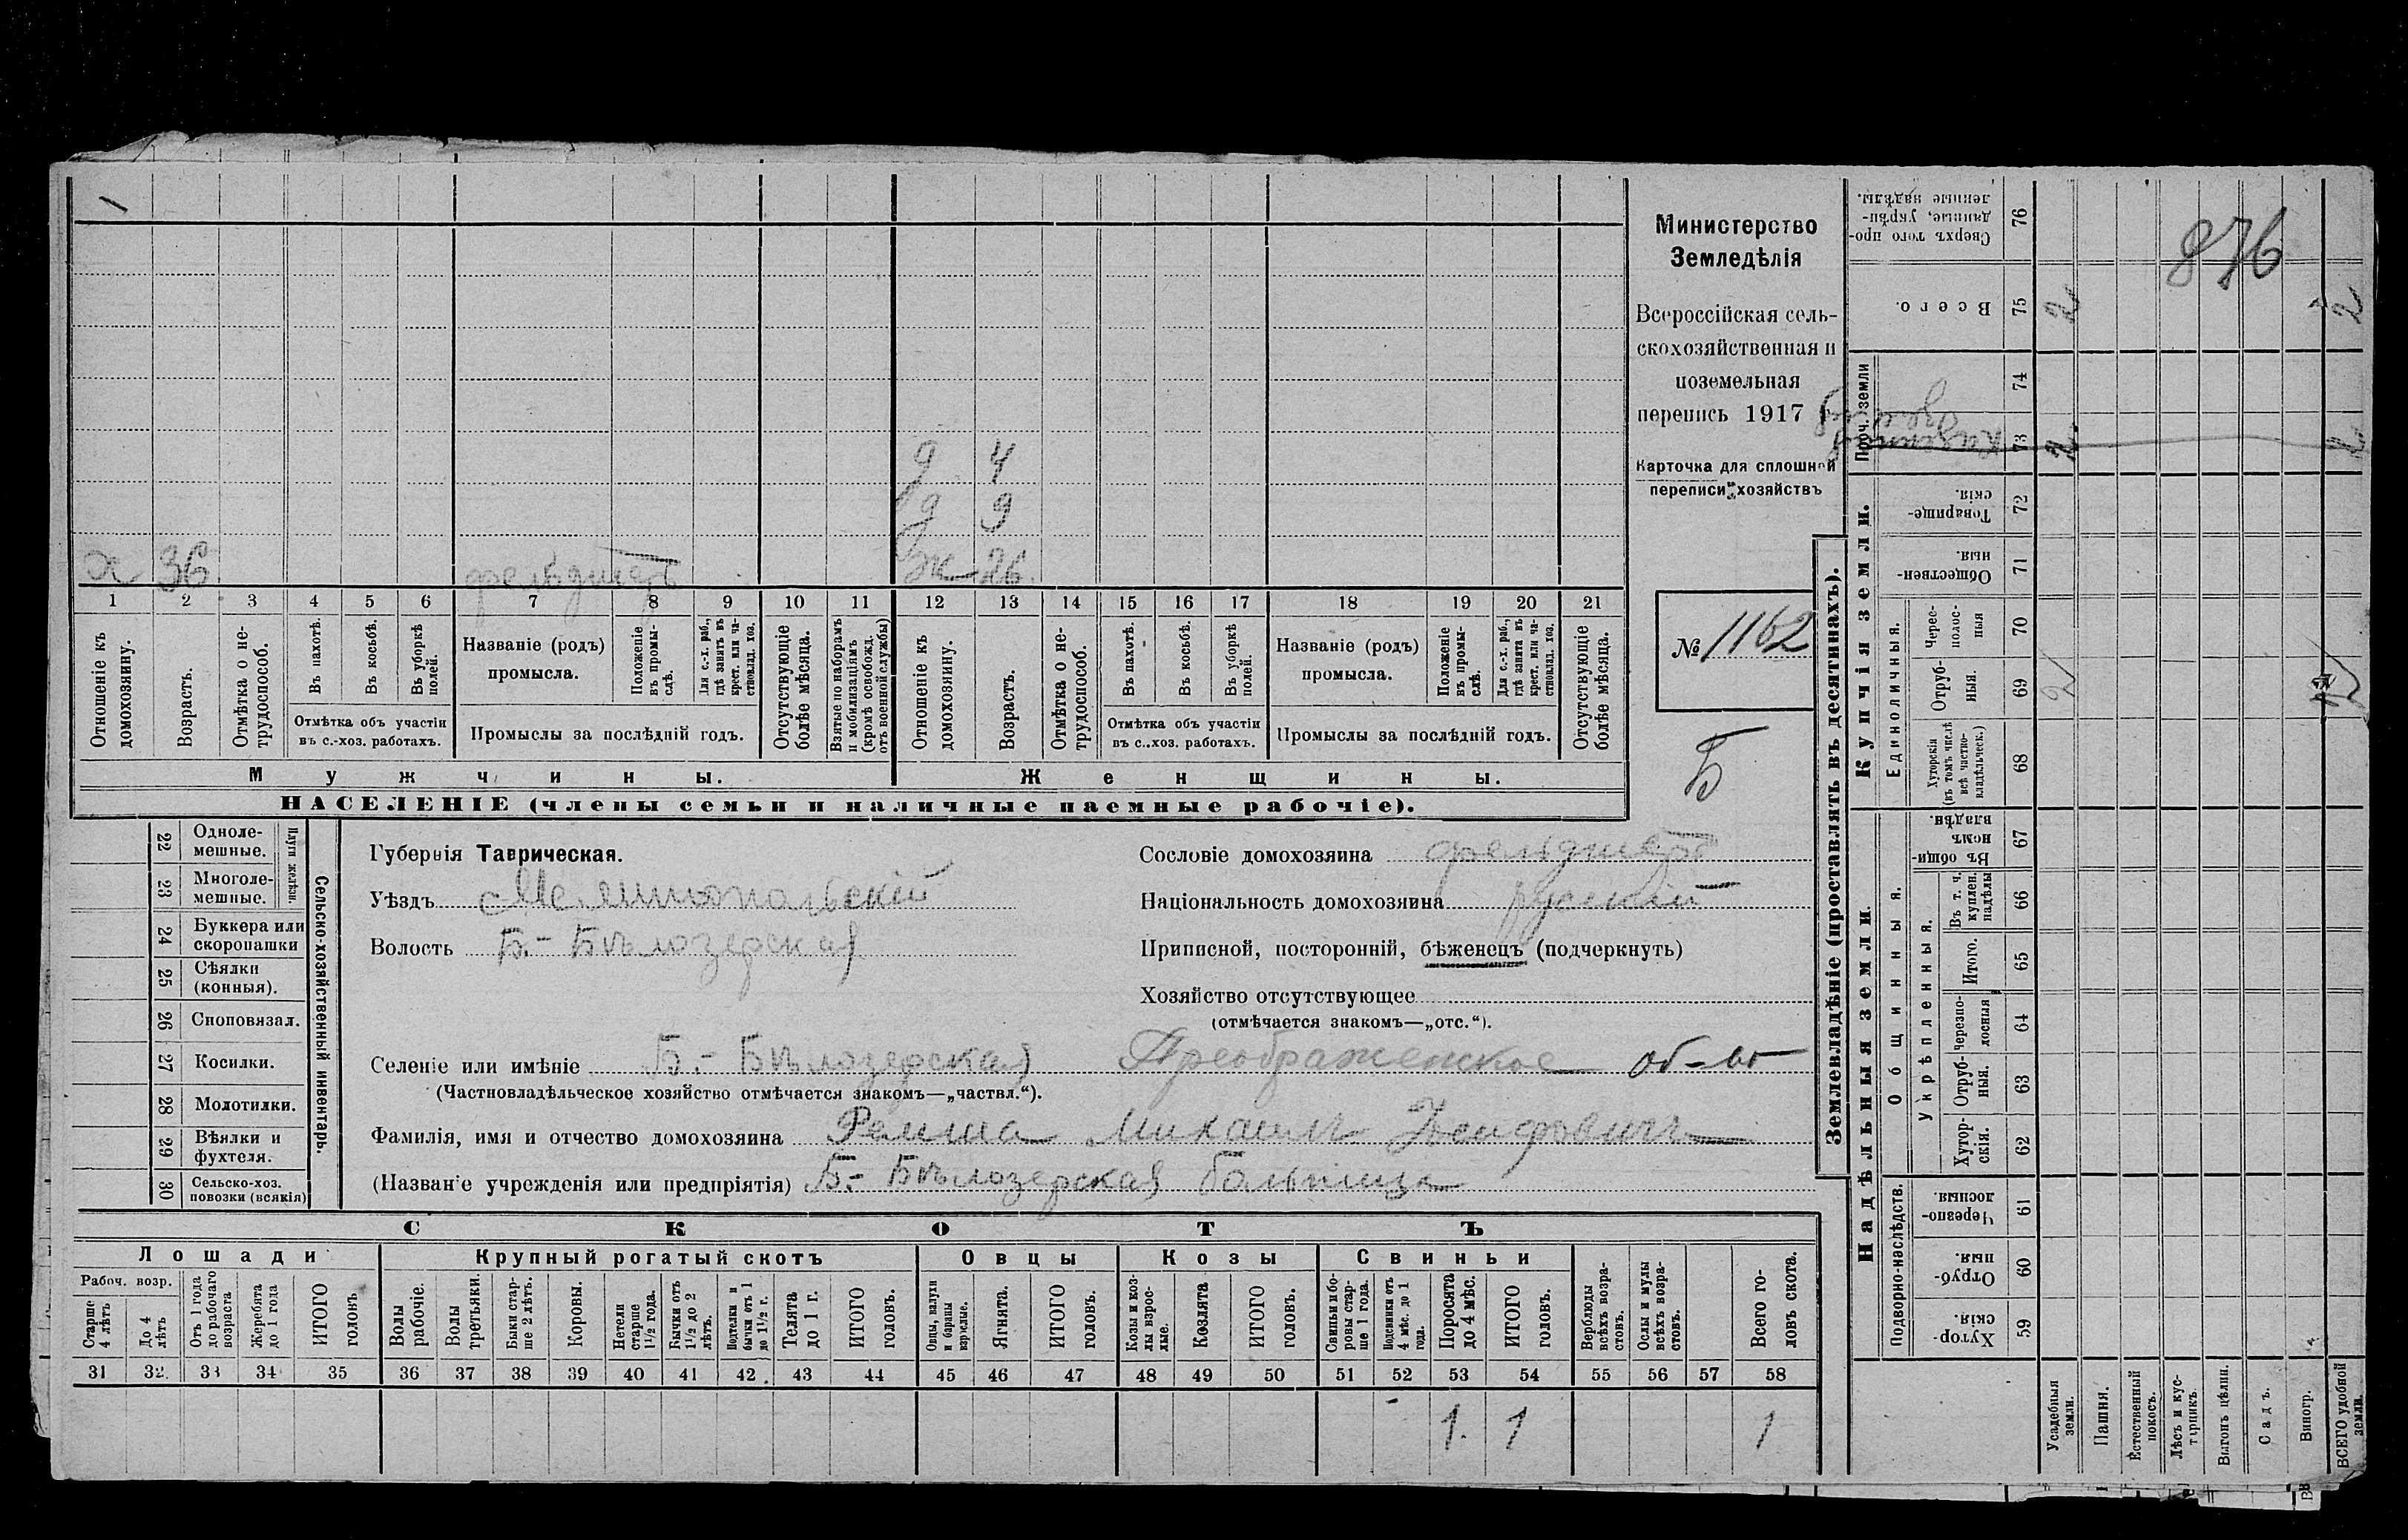 876
Министерство
Земледѣлія
Всероссійская сель-
скохозяйственная и
поземельная
перепись 1917 г.
Карточка для сплошной
переписи хозяйствъ
№ 1162
Б
д 4
д 9
х 36 фельдшеръ ж 26
1 2 3 4 5 6 7 8 9 10 11 12 13 14 15 16 17 18 19 20 21
Отношеніе къ домохозяину.
Возрастъ.
Отмѣтка о не-трудоспособ.
Въ пахотѣ.
Въ косьбѣ.
Въ уборкѣ полей.
Отмѣтка объ участіи
въ с.-хоз. работахъ.
Названіе (родъ)
промысла.
Положеніе въ промы-слѣ.
Для с.-х. раб., гдѣ занятъ въ крест. или ча-стновлад. хоз.
Промыслы за послѣдній годъ.
Отсутствующіе болѣе мѣсяца.
Взятые по наборамъ и мобилизаціямъ (кромѣ освобожд. отъ военной службы)
Отношеніе къ домохозяину.
Возрастъ.
Отмѣтка о не-трудоспособ.
Въ пахотѣ.
Въ косьбѣ.
Въ уборкѣ полей.
Отмѣтка объ участіи
въ с.-хоз. работахъ.
Названіе (родъ)
промысла.
Положеніе въ промы-слѣ.
Для с.-х. раб., гдѣ занята въ крест. или ча-стновлад. хоз.
Промыслы за послѣдній годъ.
Отсутствующіе болѣе мѣсяца.
Мужчины. Женщины.
НАСЕЛЕНІЕ (члены семьи и наличные наемные рабочіе).
Сельско-хозяйственный инвентарь.
Плуги желѣзн.
22 Однолемешные.
23 Многолемешные.
24 Буккера или скоропашки
25 Сѣялки (конныя).
26 Сноповязал.
27 Косилки.
28 Молотилки.
29 Вѣялки и фухтеля.
30 Сельско-хоз. повозки (всякія)
Губернія Таврическая.
Уѣздъ Мелитопольскій
Волость Б.-Бѣлозерская
Сословіе домохозяина фельдшеръ
Національность домохозяина русскій
Приписной, посторонній, бѣженецъ (подчеркнуть)
Хозяйство отсутствующее
(отмѣчается знакомъ—„отс.“).
Селеніе или имѣніе Б.-Бѣлозерская Преображенское об-во
(Частновладѣльческое хозяйство отмѣчается знакомъ—„частвл.“).
Фамилія, имя и отчество домохозяина Михаилъ
(Названіе учрежденія или предпріятія) Б.-Бѣлозерская больница
СКОТЪ
Лошади Крупный рогатый скотъ Овцы Козы Свиньи
Рабоч. возр.
Старше 4 лѣтъ
До 4 лѣтъ
Отъ 1 года до рабочаго возраста
Жеребята до 1 года
ИТОГО головъ
Волы рабочіе.
Волы третьяки.
Быки стар-ше 2 лѣтъ.
Коровы.
Нетели старше 1½ года.
Бычки отъ 1½ до 2 лѣтъ.
Подтелки и бычки отъ 1 до 1½ г.
Телята до 1 г.
ИТОГО головъ.
Овцы, валухи и бараны взрослые.
Ягнята.
ИТОГО головъ.
Козы и коз-лы взрос-лые.
Козлята
ИТОГО головъ.
Свиньи и бо-ровы стар-ше 1 года.
Подсвинки отъ 4 мѣс. до 1 года.
Поросята до 4 мѣс.
ИТОГО головъ.
Верблюды всѣхъ возра-стовъ.
Ослы и мулы всѣхъ возра-стовъ.
Всего го-ловъ скота.
31 32 33 34 35 36 37 38 39 40 41 42 43 44 45 46 47 48 49 50 51 52 53 54 55 56 57 58
1. 1 1
Землевладѣніе (проставлять въ десятинахъ).
Надѣльныя земли.
Купчія земли.
Проч. земли
Подворно-наслѣдств.
Общинныя.
Укрѣпленныя.
Единоличныя.
Хутор-скія. 59
Отруб-ныя 60
Черезпо-лосныя. 61
Хутор-скія. 62
Отруб-ныя. 63
Черезпо-лосныя 64
Итого. 65
Въ т. ч. куплен. надѣлы 66
Въ общин-номъ владѣн. 67
Хуторскія (въ томъ числѣ всѣ частно-владѣльческ.) 68
Отруб-ныя. 69
Черес-полос-ныя 70
Обществен-ныя 71
Товарище-скія. 72
73
74
Всего. 75
Сверхъ того про-данные, укрѣп-ленные надѣлы. 76
Усадебныя земли.
Пашня.
Естественный покосъ.
Лѣсъ и кус-тарникъ.
Выгонъ цѣлин.
Садъ.
Виногр.
ВСЕГО удобной земли.
2 2
2